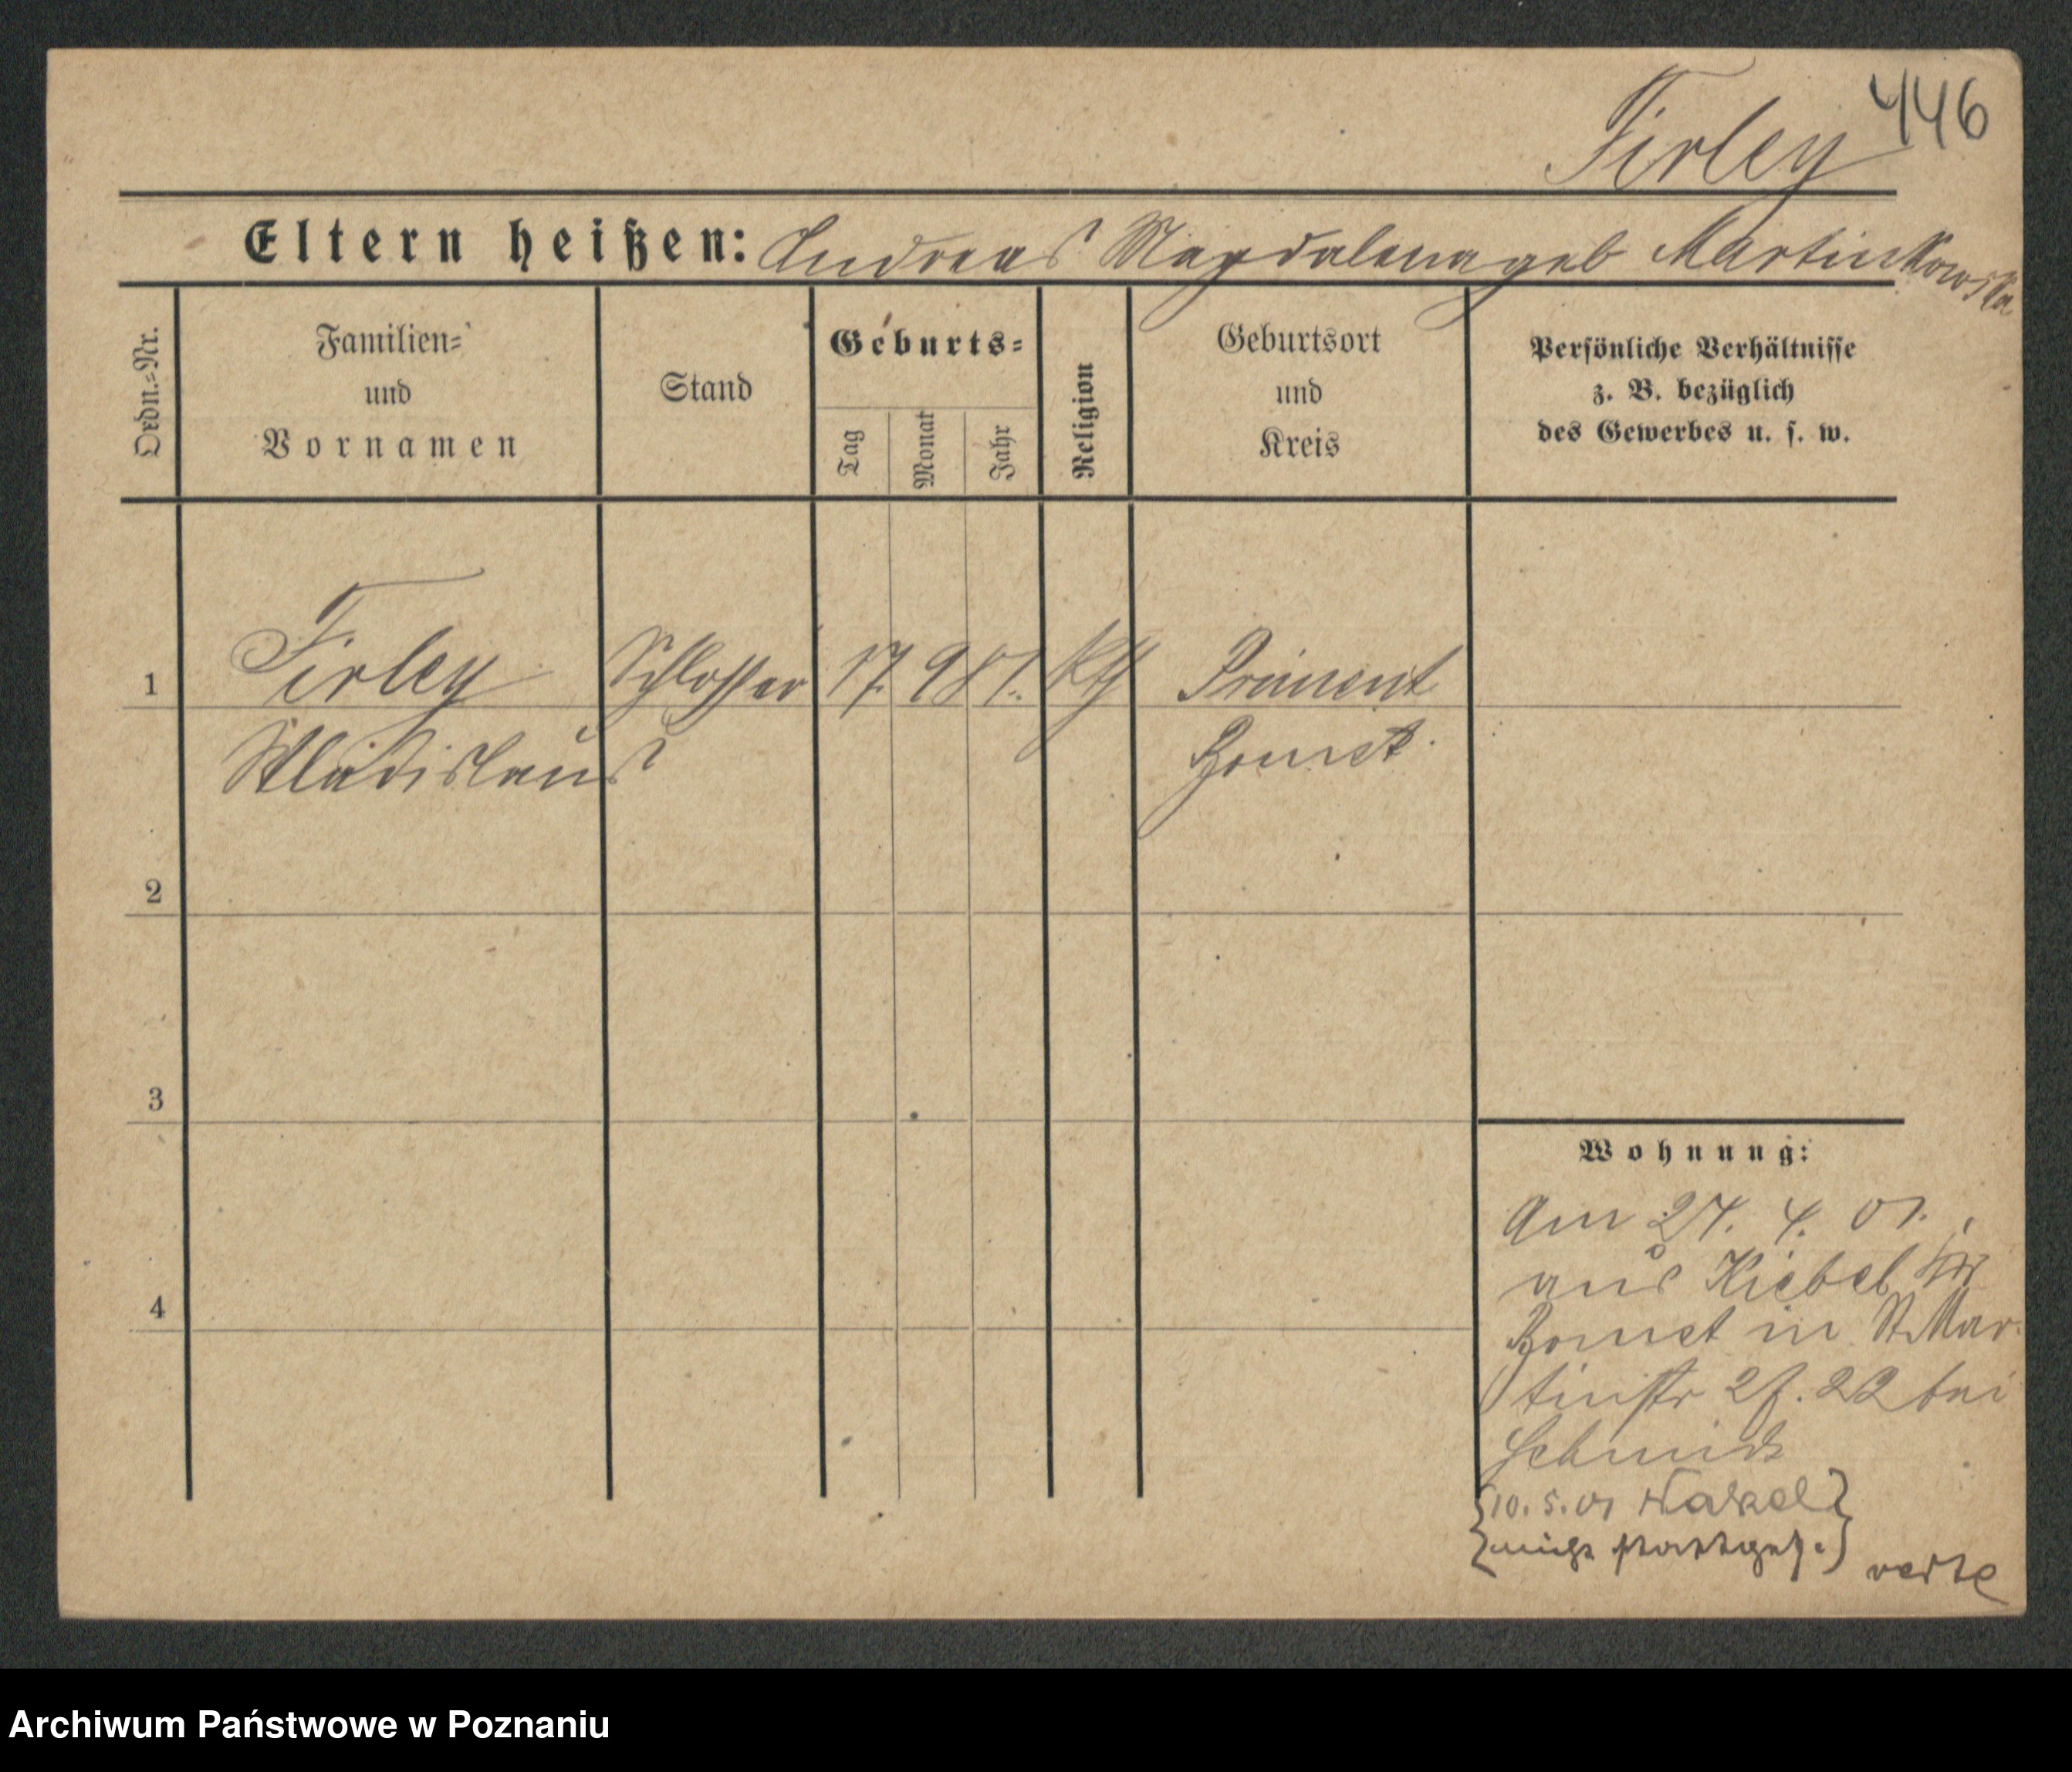 446
Firley
Eltern heißen: Andreas Magdalena geb Martinkowska
Ordn.=Nr.
Familien=
und
Vornamen
Stand
Geburts=
Tag
Monat
Jahr
Religion
Geburtsort
und
Kreis
Persönliche Verhältnisse
z. B. bezüglich
des Gewerbes u. s. w.
1 Firley Schlosser 17. 9 81. kth Priment
Wladislaus Bomst.
2
3
4
Wohnung:
Am 24. 4. 01.
aus Kiebel Kr
Bomst in St. Mar
tinstr 27. 22 bei
Schmidt
10. 5. 01 Nakel
nicht stattgef.
verte
Archiwum Państwowe w Poznaniu